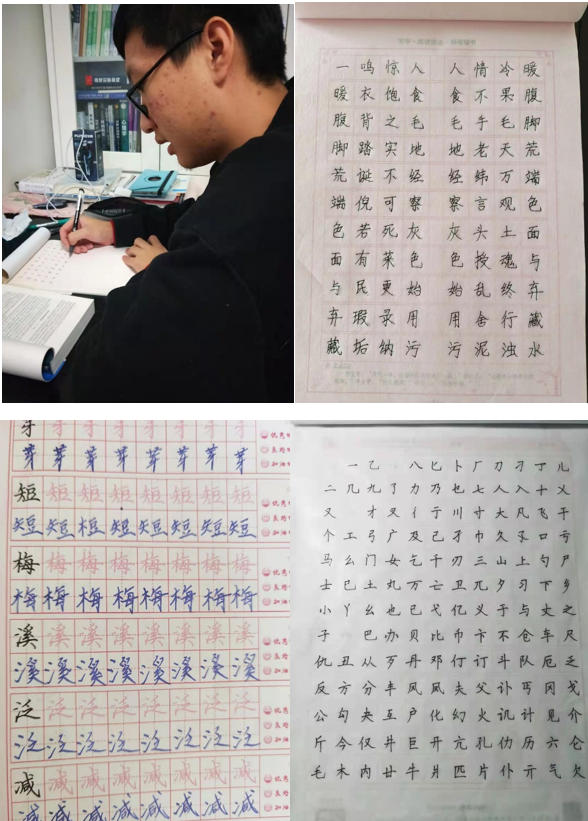 一鸣惊人 人情冷暖
暖衣饱食 食不果腹
腹背之毛 毛手毛脚
脚踏实地 地老天荒
荒诞不经 经纬万端
端倪可察 察言观色
色若死灰 灰头土面
面有菜色 色授魂与
与民更始 始乱终弃
弃瑕录用 用舍行藏
藏垢纳污 污泥浊水
牙 牙 牙 牙 牙 牙 牙
芽 芽 芽 芽 芽 芽 芽
短 短 短 短 短 短 短 短
短 短 短 短 短 短 短 短
梅 梅 梅 梅 梅 梅 梅 梅
梅 梅 梅 梅 梅 梅 梅 梅
溪 溪 溪 溪 溪 溪 溪 溪
溪 溪 溪 溪 溪 溪 溪 溪
泛 泛 泛 泛 泛 泛 泛 泛
泛 泛 泛 泛 泛 泛 泛 泛
减 减 减 减 减 减 减 减
减 减 减 减 减 减 减 减
一 乙 八 匕 卜 厂 刀 刁 丁 儿
二 几 九 了 力 乃 七 人 入 十 义
又 才 叉 彳 亍 川 寸 大 凡 飞 干
个 工 弓 广 及 己 孑 巾 久 孓 口 亏
马 么 门 女 乞 千 刃 三 山 上 勺 尸
士 巳 土 丸 万 亡 卫 兀 夕 习 下 乡
小 丫 幺 也 已 弋 亿 义 于 与 丈 之
子 巴 办 贝 比 币 卞 不 仓 车 尺
仇 丑 从 歹 丹 邓 仃 订 斗 队 厄 乏
反 方 分 丰 风 凤 夫 父 讣 丐 冈 戈
公 勾 夬 互 户 化 幻 火 讥 计 见 介
斤 今 仅 井 巨 开 亢 孔 仂 历 六 仑
毛 木 内 廿 牛 爿 匹 片 仆 亓 气 欠